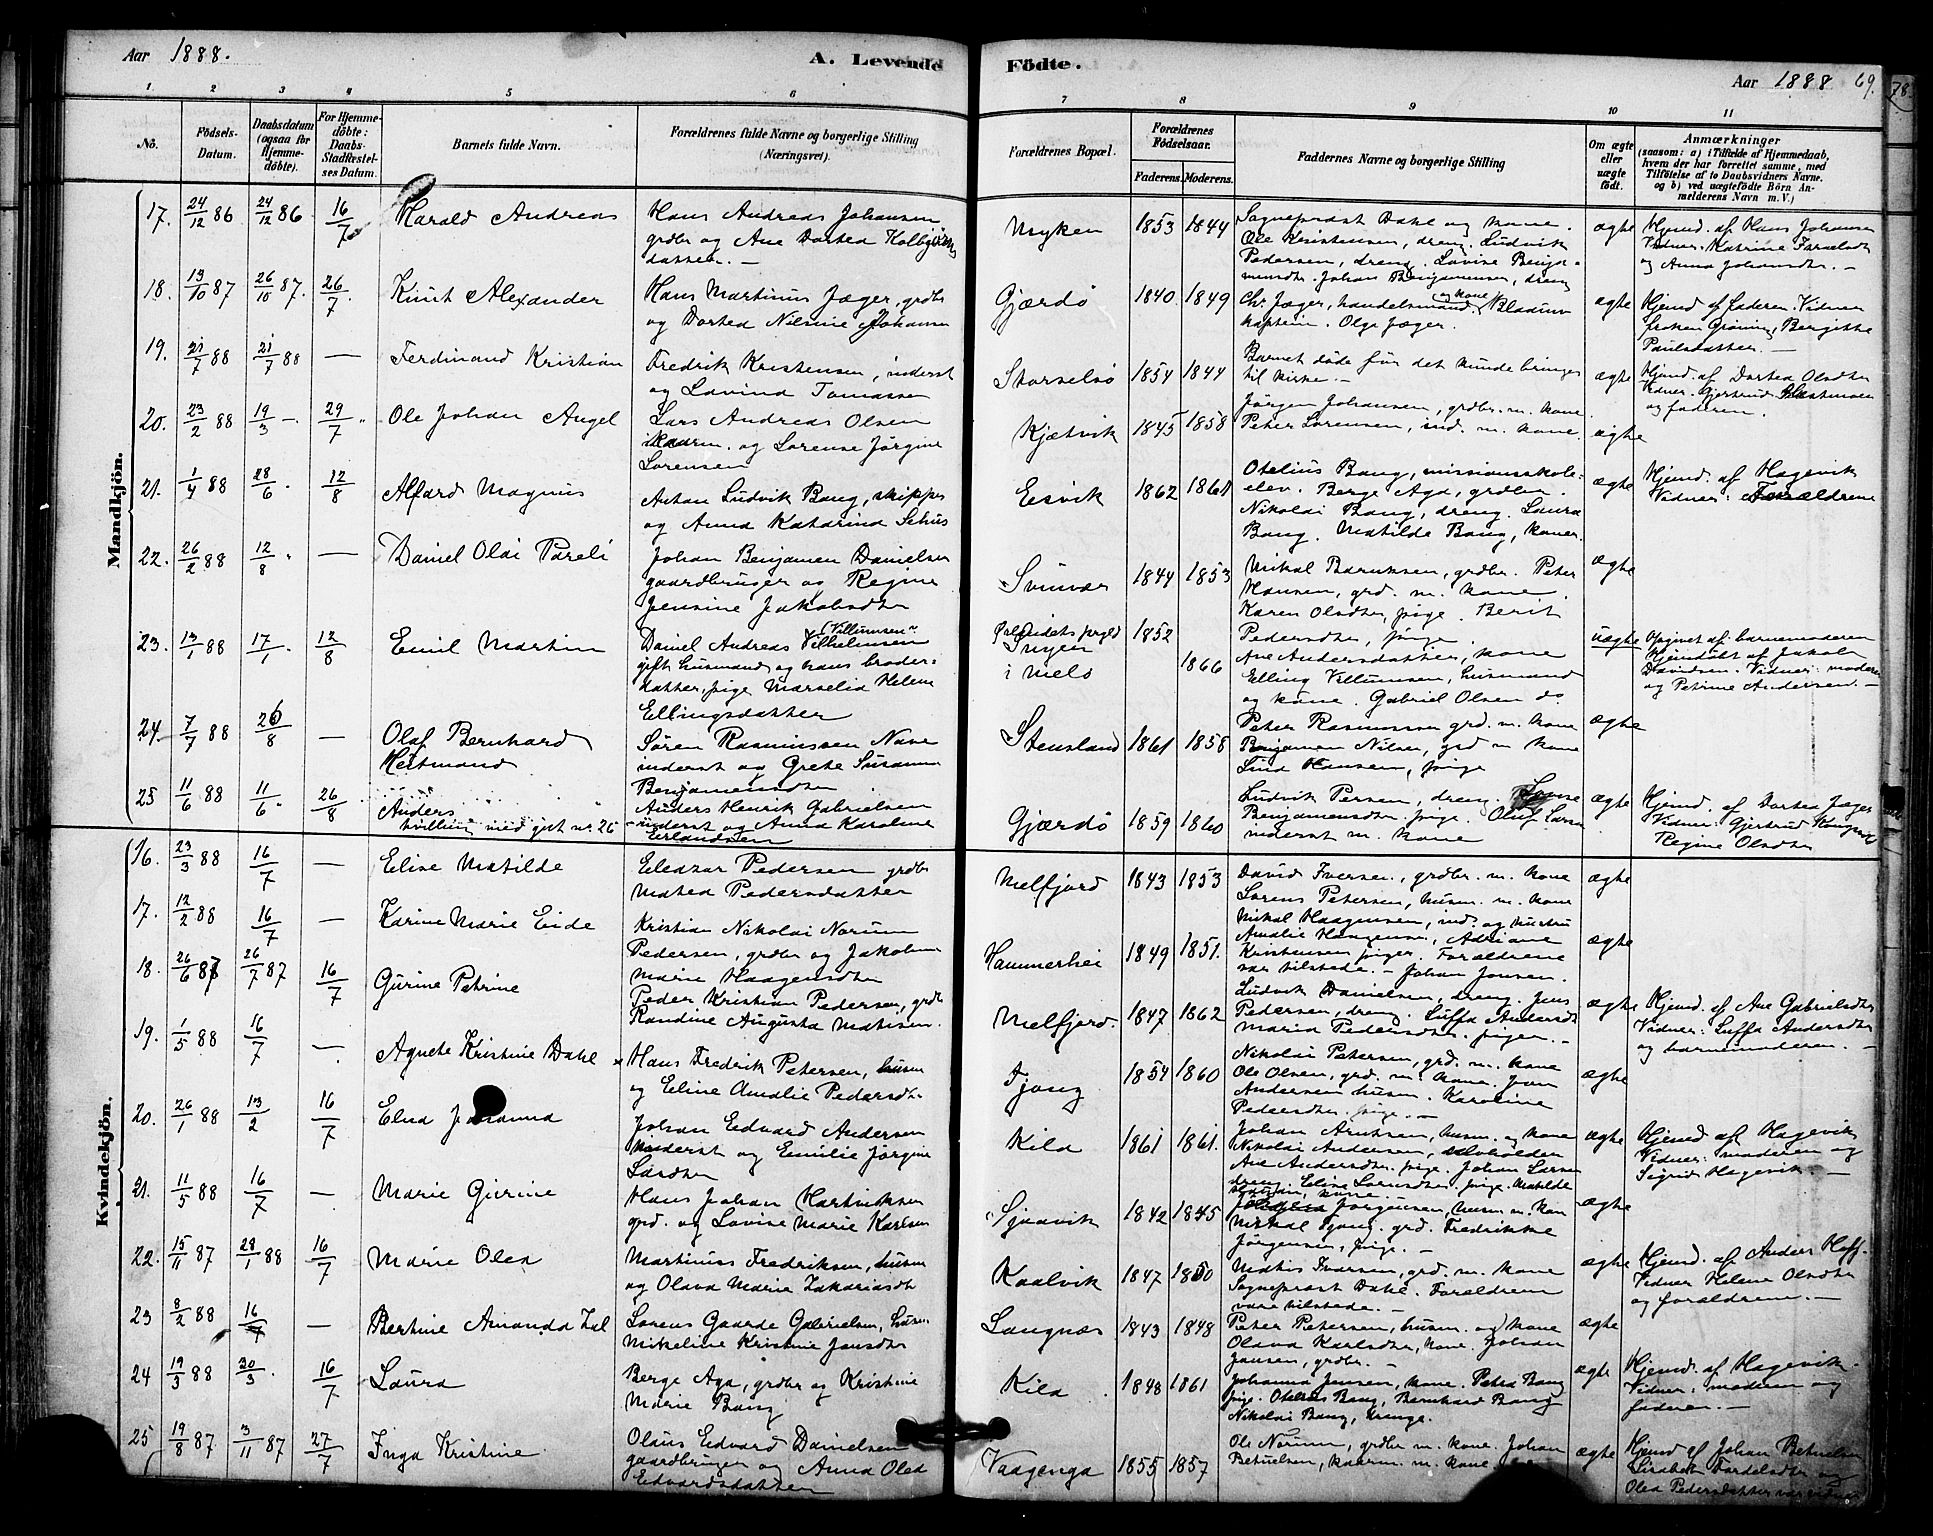 Aar 1888.
A. Levende Födte.
Aar 1888 69.
78.
1 2 3 4 5 6 7 8 9 10 11
No.
Födsels-Datum.
Daabsdatum (ogsaa for Hjemmedöbte).
For Hjemmedöbte: Daabs-Stadfæstelses Datum.
Barnets fulde Navn.
Forældrenes fulde Navne og borgerlige Stilling (Næringsvei).
Forældrenes Bopæl.
Forældrenes Födselsaar.
Faderens. Moderens.
Faddernes Navne og borgerlige Stilling
Om ægte eller uægte födt.
Anmærkninger
(saasom: a) i Tilfælde af Hjemmedaab, hvem der har forrettet samme, med Tilföielse af to Daabsvidners Navne. og b) ved uægtefödte Börn Anmelderens Navn m. V.)
Mandkjön.
17. 24/12 86 24/12 86 16/7 Harald Andreas
Hans Andreas Johansen
grdbr og Ane Dortea
datter. —
Myken 1853 1844
Sogneprest Dahl og kone.
Ole Kristensen, dreng. Ludvik
Pedersen, dreng. Lovise
Johan Benjaminsen, dreng
ægte
Hjemd. af Hans Johansen
Vidner: Katrine
og Anna Johansdtr. —
18. 13/10 87 26/10 87. 26/7. Knut Alexander
Hans Martinus Jæger, grdbr
og Dortea Nilsine Johansen
Gjærdö 1840 1849
Chr. Jæger, handelsmand og kone.
kaptein. Olga Jæger.
ægte
Hjemd af faderen. Vidner
frøken Grøning, Bergitte
Paulsdatter. —
19. 21/7 88 21/7 88 — Ferdinand Kristian
Fredrik Kristensen, inderst
og Lavina Tomassen
Storselsö 1854 1844
Barnet döde för det kunde bringes
til kirke. —
ægte
Hjemd. af Dortea Olsdtr
Vidner. Gjertrud
og faderen.
20. 23/2 88 19/3 — 29/7 " Ole Johan Angel
Lars Andreas Olsen
og Lorense Jörgine
Lorensen
Kjætvik 1845 1858
Jörgen Johansen, grdbr. m. kone.
Peter Lorensen, ind. m. kone.
ægte
21. 1/4 88 28/6. 12/8 Alfard Magnus
Anton Ludvik Bang, skipper
og Anna Katarina Schus
Esvik 1862 1861
Otelius Bang, missionsskole-
elev. Berge Aga, grdbr.
Nikolai Bang, dreng. Laura
Bang. Matilde Bang, koner.
ægte
Hjemd. af Hagevik
Vidner: Forældrene
22. 26/2 88 12/8 " — Daniel Olai Pareli
Johan Benjamen Danielsen
gaardbruger og Regine
Jensine Jakobsdtr
Svinvær 1844 1853
Mikal Baruksen, grdbr. Peter
Hansen, grd. m. kone.
Karen Olsdtr, pige. Berit
Pedersdtr, pige.
ægte
23. 13/1 88 17/1. 12/8 Emil Martin
Daniel Andreas Vilhelmsen (Villumsen")
gift husmand og hans broder-
datter, pige Marselia Helene
Ellingsdatter
i Melö 1852 1866
Ane Andersdatter, kone
Elling Villumsen, husmand
og kone. Gabriel Olsen do
uægte
Opgivet af barnemoderen
Hjemdöbt af Jakob
Davidsen. Vidner: moderen
og Petrine Andersen. —
24. 7/7 88 26/8 — Olaf Bernhard
Hestmand
Sören Rasmussen Nave
inderst og Grete Susanna
Benjamensdtr
Stensland 1861 1858
Peter Rasmussen grd. m. kone
Benjamen Nilsen, grd m kone
Lina Hansen, pige
ægte
25 11/6 88 11/6. 26/8 Anders
tvilling med
Anders Henrik Gabrielsen
inderst og Anna Karoline
Erlandsen
Gjærdö 1859 1860
Ludvik Persen, dreng. Lovise
Benjamensdtr pige. Oluf Larsen
inderst m. kone
ægte
Hjemd. af Dortea Jæger
Vidner: Gjertrud
Regine Olsdtr
Kvindekjön.
16. 23/3 88 16/7 — Elise Matilde
Eleazar Pedersen grdbr
Matea Pedersdatter
Melfjord 1843 1853
David Iversen, grdbr. m. kone
Lorens Petersen, husm. m. kone
ægte
17. 12/2 88 16/7 — Karine Marie Eide
Kristian Nikolai Norum
Pedersen, grdbr og Jakobine
Marie Haagensdtr
Hammerhei 1849 1851.
Mikal Haagensen, ind. og hustru
Amalie Haagensen, Adriane
Kristensen piger. Forældrene
var tilstede. — Johan Jonsen.
ægte
18. 26/6 87 26/7 87 16/7 Gurine Petrine
Peder Kristian Pedersen, grdbr
Randine Augusta Matisen.
Melfjord. 1847 1862
Ludvik Danielsen, dreng. Jens
Pedersen, dreng. Luffa Andersdtr
Maria Pedersdtr. piger. —
ægte
Hjemd. af Ane Gabrielsdtr
Vidner: Luffa Andersdtr
og barnemoderen. —
19. 1/5 88 16/7 — Agnete Kristine Dahl
Hans Fredrik Petersen, husm
og Eline Amalie Pedersdtr.
Tjong 1854 1860
Nikolai Petersen, grd. m. kone
Ole Olsen, grd. m. kone.
Andersen husm. Karoline
Pedersdtr, pige. —
ægte
20. 26/1 88 13/2 16/7 Elna Johanna
Johan Edvard Andersen
inderst og Emilie Jörgine
Larsdtr
Kila 1861 1861.
Johan Arntsen, husm. og kone
Nikolai Andersen,
Ane Andersdtr. pige. Johan Larsen
dreng. Eline Larsdtr. pige. Matilde
ægte
Hjemd af Hagevik
Vidner: moderen og
Sigrid Hagevik —
21. 11/5 88 16/7 — Marie Gurine
Hans Johan Hartviksen
grd. og Lovise Marie Karlsen
Sjaavik 1842 1845
Jörgensen, husm. m. kone
Mikal Tjong, grd. Fredrikke
Jörgensen, pige. —
ægte
22. 15/11 87 28/1 88 16/7 Marie Olea
Martinus Fredriksen, husm
og Olava Marie Zakariasdtr
Kaalvik 1847 1850
Matis Iversen, grd. m. kone
Sogneprest Dahl. Forældrene
vare tilstede. —
ægte
Hjemd. af Anders Hoff.
Vidner Helene Olsdtr
og forældrene. —
23 8/2 88 16/7 — Bertine Amanda
Lorens Gaarde Gabrielsen, husm.
Mikeline Kristine Jensdtr
Langnæs 1843 1848
Peter Petersen, husm. og kone
Olava Karlsdtr, kone. Johan
Jansen, grdbr. —
ægte
24 19/3 88 30/3. 16/7 Laura
Berge Aga, grdbr og Kristine
Marie Bang
Kila. 1848 1861
Johanna Jensen, kone. Petra Bang
pige. Otelius Bang, Bernhard Bang
Nikolai Bang, drenge.
ægte
Hjemd. af Hagevik.
Vidner: moderen og
faderen. —
25 19/8 87 3/11 87 27/7 Inga Kristine
Olaus Edvard Danielsen
gaardbruger og Anna Olea
Edvardsdatter
Vaagenga 1855 1857
Ole Norum, grdbr m. kone. Johan
Betuelsen, m. kone
ægte
Hjemd af Johan Betuelsen
Lisabet
Olea Pedersdatter